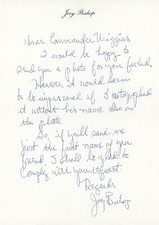 Joey Bishop
Dear Commander Wiggins
I would be happy to
send you a photo for your friend.
However, it would seem
to be impersonal if I autographed
it without his name also on
the photo
So, if you'll send me
just the first name of your
friend, I shall be glad to
comply with your request.
Regards
Joey Bishop